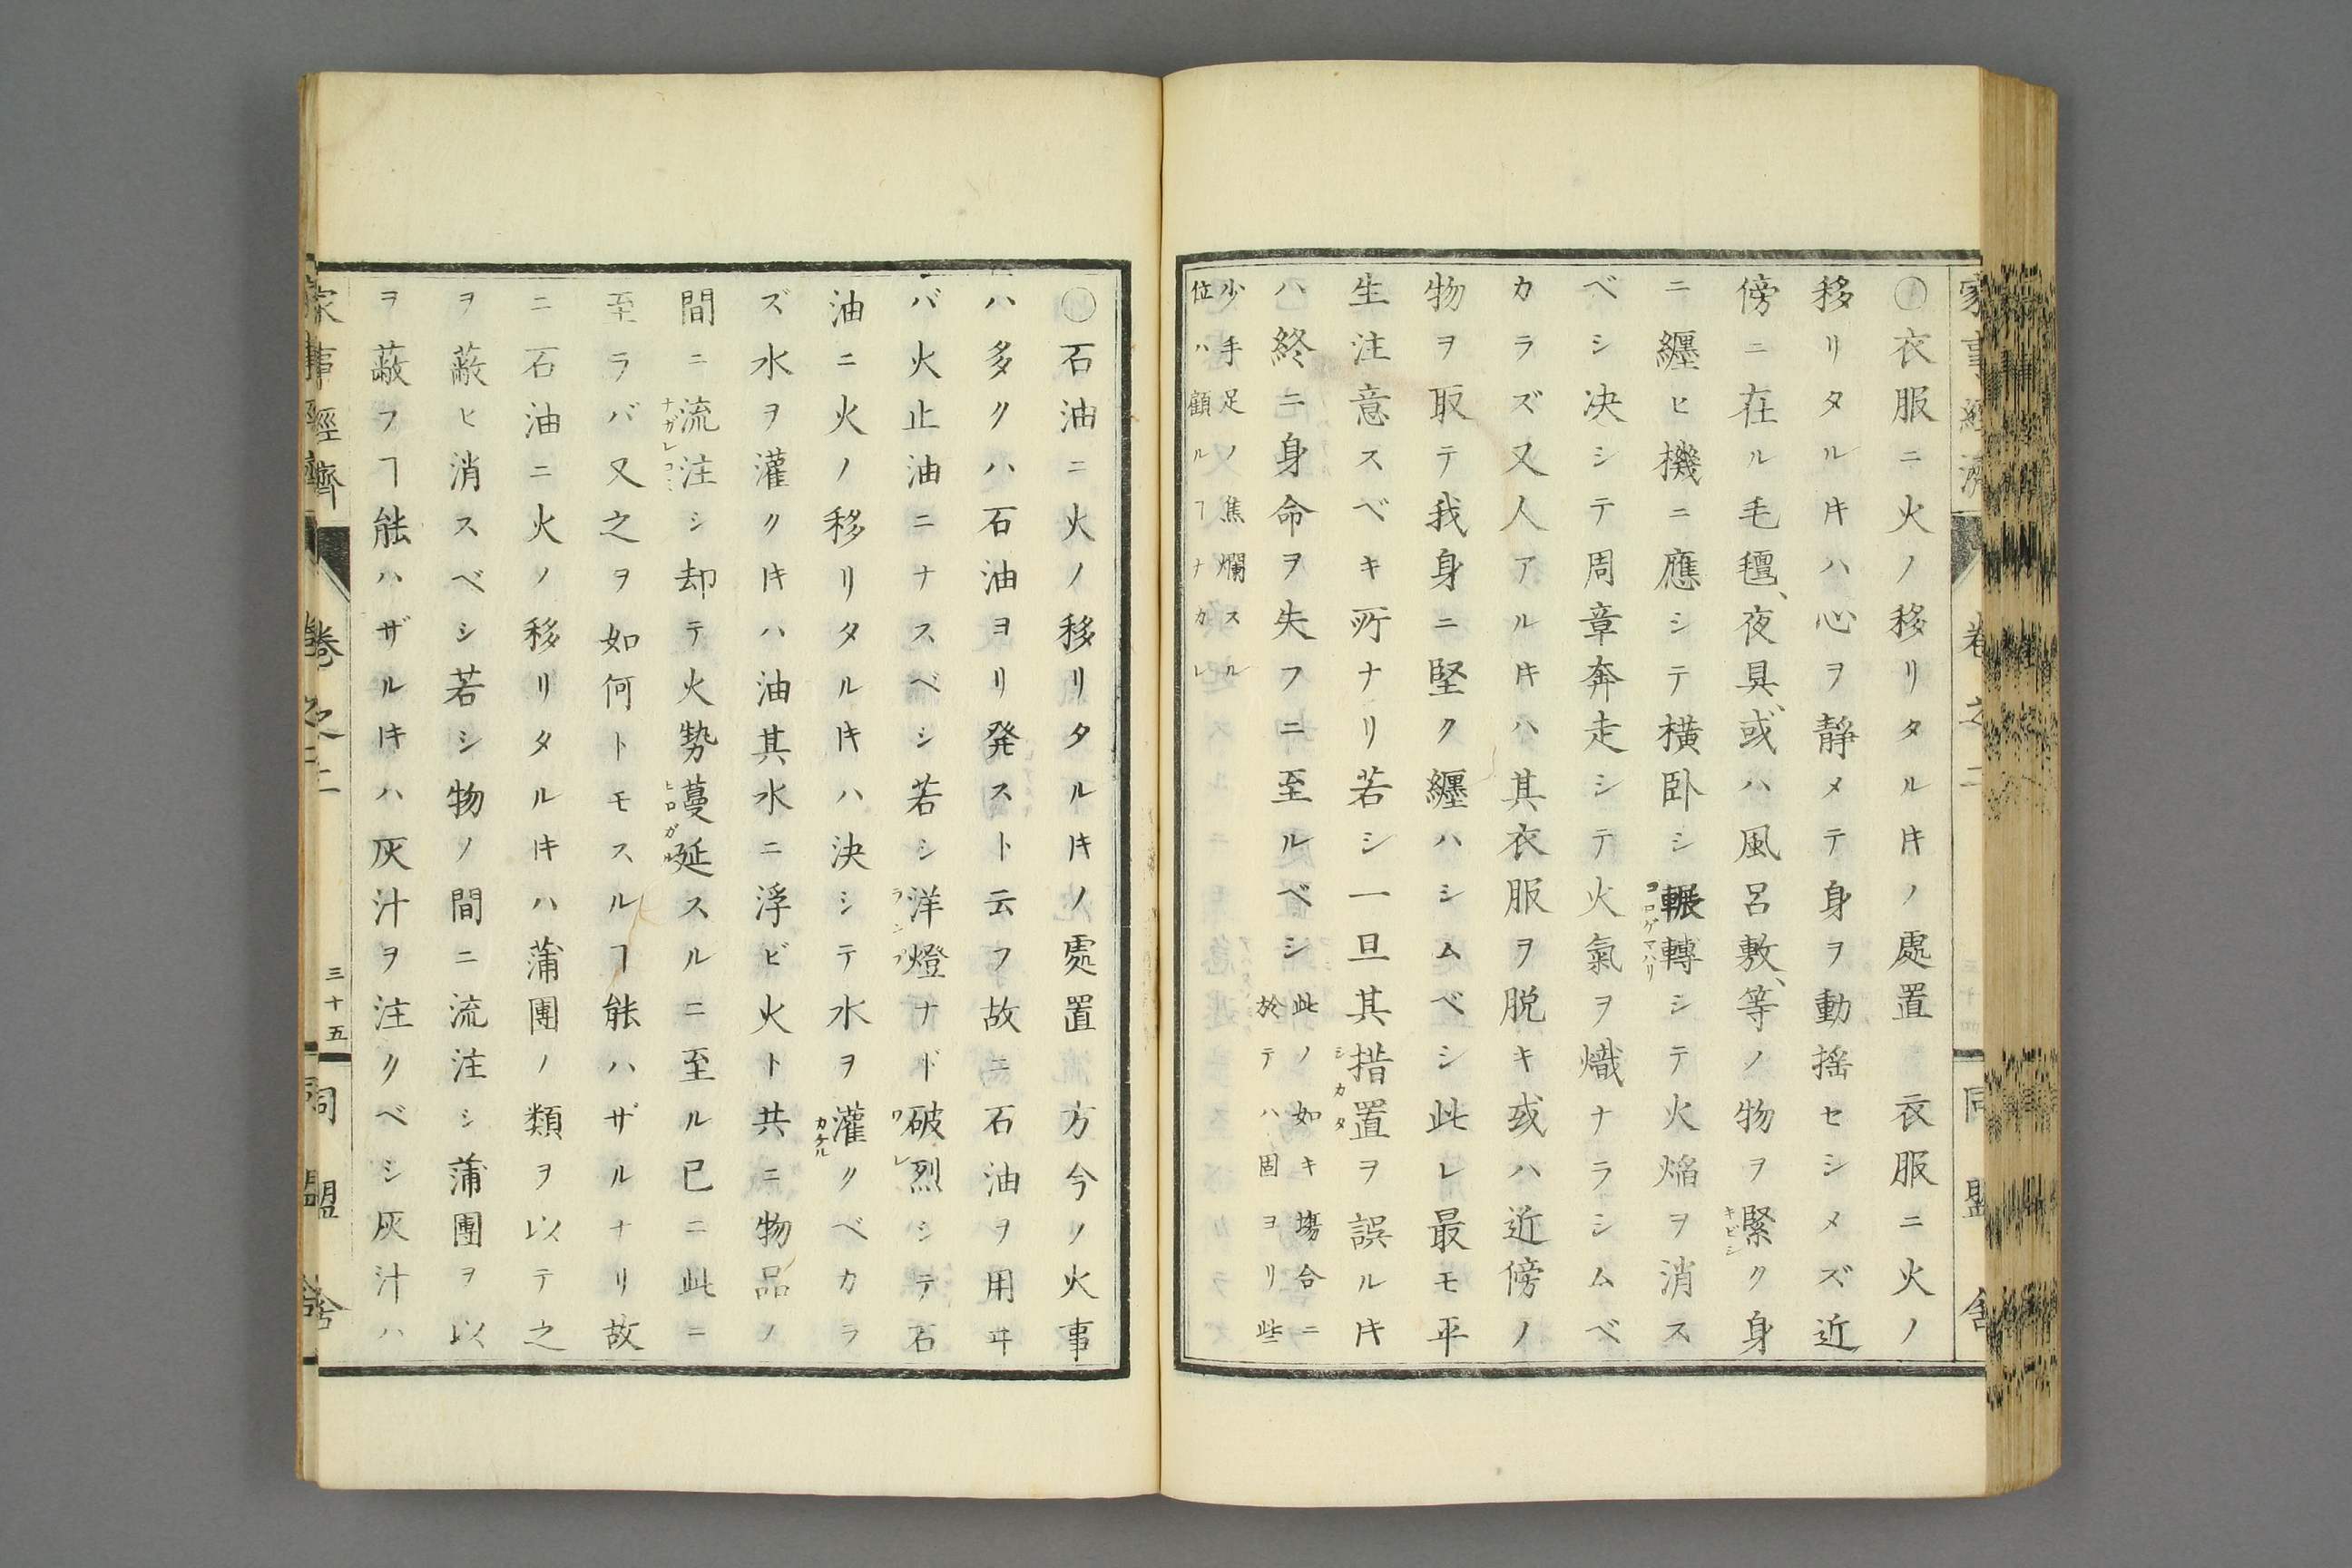 〇衣服ニ火ノ移リタルㇰ゙ノ處置　衣服ニ火ノ
移リタル𪜈ハ心ヲ靜メテ身ヲ動揺セシメズ近
傍ニ在ル毛氊、夜具、或ハ風呂敷、等ノ物ヲ緊ク身
キビシ
ニ纏ヒ機ニ應シテ横卧シ輾轉シテ火焔ヲ消ス
コロゲマハリ
ベシ决シテ周章奔走シテ火氣ヲ熾ナラシムベ
カラズ又人アル𪜈ハ其衣服ヲ脱キ或ハ近傍ノ
物ヲ取テ我身ニ堅ク纒ハシムベシ此レ最モ平
生注意スベキ所ナリ若シ一旦其措置ヲ誤ル𪜈
シカタ
ハ終ニ身命ヲ失フニ至ルベシ
此ノ如キ塲合ニ
於テハ固ヨリ些
少手足ノ焦爛スル
位ハ顧ルヿナカレ
〇石油ニ火ノ移リタル𪜈ノ處置方今ノ火事
ハ多クハ石油ヨリ発スト云フ故ニ石油ヲ用ヰ
バ火止油ニナスベシ若シ洋燈ナド破烈シテ石
ランプ
ワレ
油ニ火ノ移リタル𪜈ハ決シテ水ヲ灌クベカラ
カケル
ズ水ヲ灌ク𪜈ハ油其水ニ浮ビ火ト共ニ物品ノ
間ニ流注シ却テ火勢蔓延スルニ至ル已ニ此ニ
ナガレコミ
ヒロガル
至ラバ又之ヲ如何トモスルヿ能ハザルナリ故
ニ石油ニ火ノ移リタル𪜈ハ蒲團ノ類ヲ以テ之
ヲ蔽ヒ消スベシ若シ物ノ間ニ流注シ蒲團ヲ以
ヲ蔽フヿ能ハザル𪜈ハ灰汁ヲ注クベシ灰汁ハ
家事經濟
卷之二
三十五
同盟舎